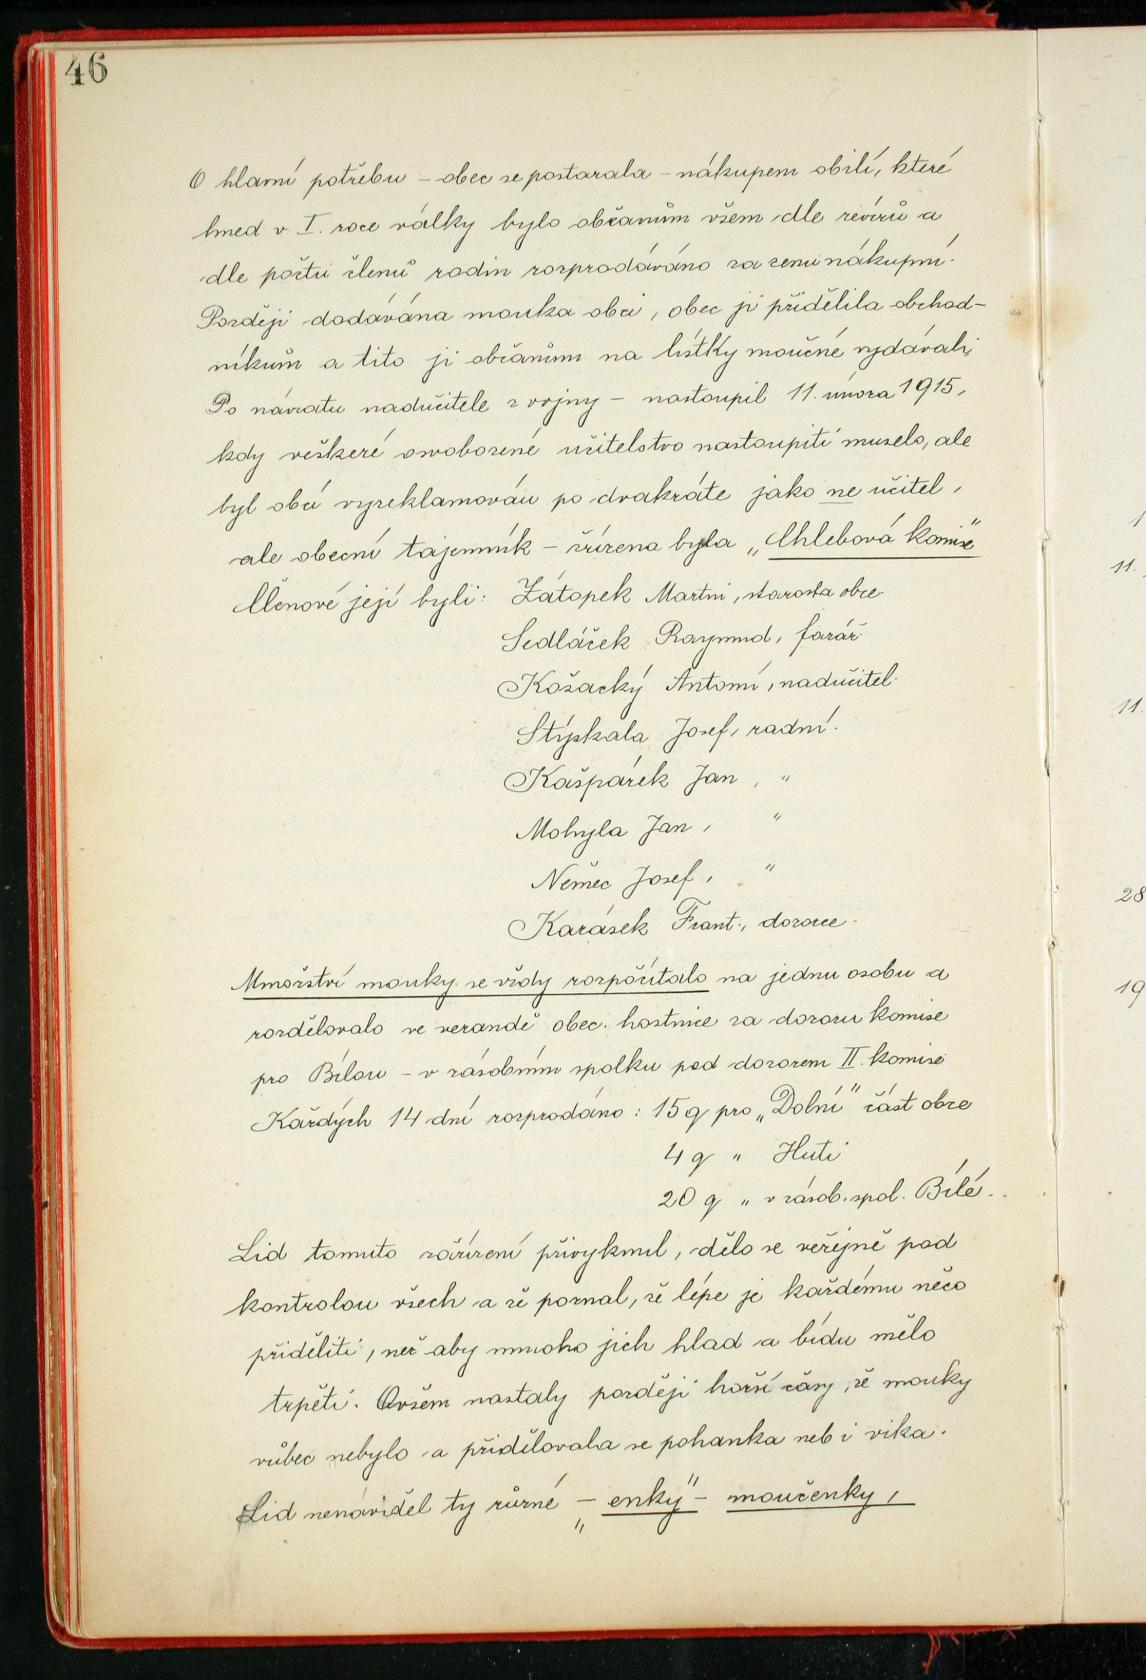 46
O hlavní potřebu – obec se postarala – nákupem obilí, které
hned v I. roce války bylo občanům všem dle revírů a
dle počtu členů rodin rozprodáváno za cenu nákupní.
Později dodávána mouka obci, obec ji přidělila obchod-
níkům a tito ji občanům na lístky moučné vydávali,
Po návratu nadučitele z vojny – nastoupil 11. února 1915,
kdy veškeré osvobozené učitelstvo nastoupiti muselo, ale
byl obcí vyreklamován po dvakráte jako ne učitel,
ale obecní tajemník – zřízena byla „Chlebová komise"
Členové její byli: Zátopek Martin, starosta obce
Sedláček Raymund, farář
Košacký Antoní, nadučitel.
Stýskala Josef, radní.
Kašpárek Jan, "
Mohyla Jan, "
Němec Josef, "
Karásek Frant., dozorce.
Množství mouky se vždy rozpočítalo na jednu osobu a
rozdělovalo ve verandě obec. hostince za dozoru komise
pro Bílou – v zásobním spolku pod dozorem II. komise
Každých 14 dní rozprodáno: 15 q pro „Dolní" část obce
4 q " Huti
20 q " v zásob. spol. Bílé.
Lid tomuto zařízení přivyknul, dělo se veřejně pod
kontrolou všech a že poznal, že lépe je každému něco
přiděliti, než aby mnoho jich hlad a bídu mělo
trpěti. Ovšem nastaly později horší časy, že mouky
vůbec nebylo a přidělovala se pohanka neb i vika.
Lid nenáviděl ty různé – „enky" – moučenky,
11.
11.
28
19